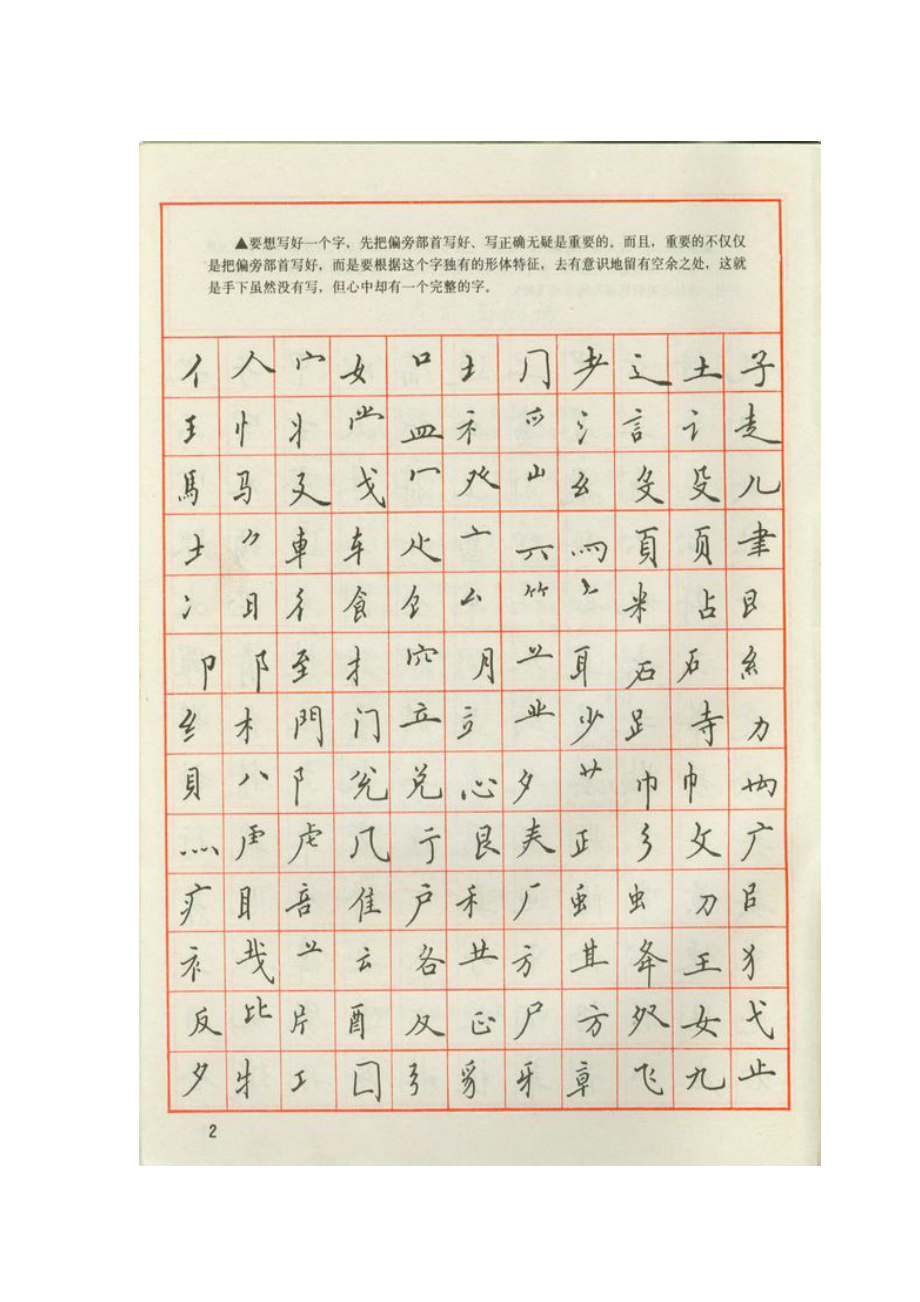 ▲要想写好一个字，先把偏旁部首写好、写正确无疑是重要的。而且，重要的不仅仅
是把偏旁部首写好，而是要根据这个字独有的形体特征，去有意识地留有空余之处，这就
是手下虽然没有写，但心中却有一个完整的字。
亻 人 宀 女 口 土 冂 耂 辶 土 子
王 忄 丬 龸 皿 礻 爫 氵 言 讠 走
馬 马 廴 戈 冖 癶 山 幺 殳 殳 儿
士 車 车 亠 六 罒 頁 页 聿
冫 日 彳 食 厶 米 占
卩 阝 至 扌 穴 月 耳 石 石 糹
纟 木 門 门 立 立 业 少 𧾷 寺 力
貝 八 阝 兑 心 夕 艹 巾 巾
灬 虍 几 亍 艮 正 彡 文 广
疒 目 咅 隹 户 禾 厂 虫 虫 刀
衤 云 各 龷 方 其 夆 王 犭
反 比 片 酉 及 正 尸 方 女 弋
夕 牜 工 囗 弓 豸 牙 章 飞 九 止
2